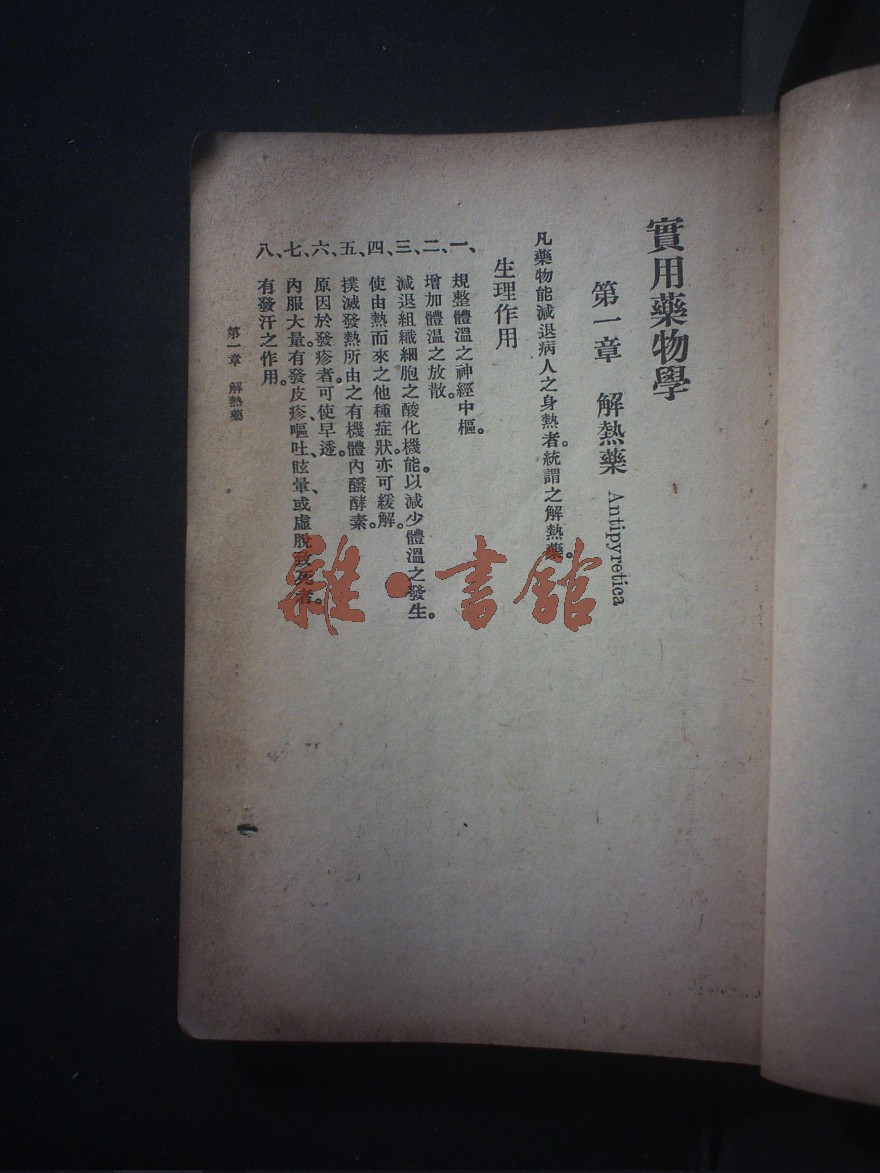 實用藥物學
第一章　解熱藥 Antipyretica
凡藥物能減退病人之身熱者。統謂之解熱藥。
生理作用
一、規整體溫之神經中樞。
二、增加體溫之放散。
三、減退組織細胞之酸化機能。以減少體溫之發生。
四、使由熱而來之他種症狀。亦可緩解。
五、撲滅發熱所由之有機體內醱酵素。
六、原因於發疹者可使早透。
七、內服大量。有發皮疹、嘔吐、眩暈、或虛脫致死者。
八、有發汗之作用。
第一章　解熱藥
一
雜·書館